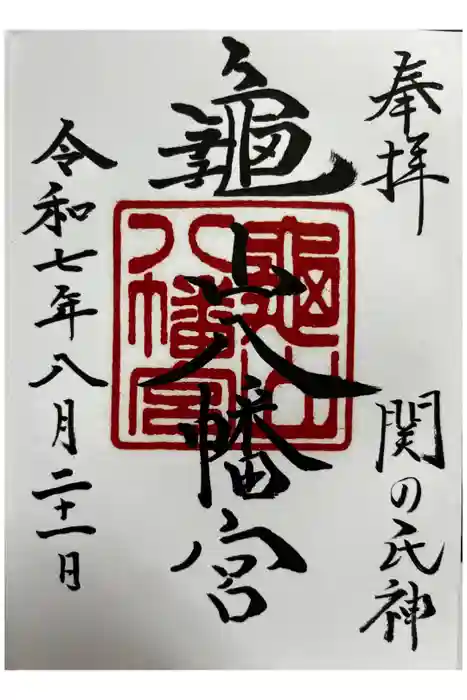 奉拝
関の氏神
龜山八幡宮
龜山八幡宮
令和七年八月二十一日